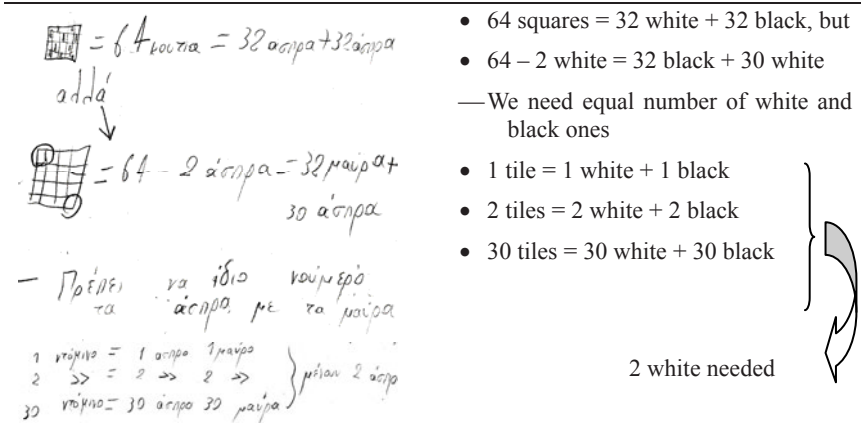 = 64 κουτια = 32 ασπρα + 32 άσπρα
αλλά
= 64 - 2 άσπρα = 32 μαύρα +
30 άσπρα
— Πρέπει να ίδιο νούμερο
τα άσπρα με τα μαύρα
1 ντόμινο = 1 άσπρο 1 μαύρο
2 >> = 2 >> 2 >>
30 ντόμινο = 30 άσπρο 30 μαύρα
μείναν 2 άσπρ
• 64 squares = 32 white + 32 black, but
• 64 – 2 white = 32 black + 30 white
— We need equal number of white and
black ones
• 1 tile = 1 white + 1 black
• 2 tiles = 2 white + 2 black
• 30 tiles = 30 white + 30 black
2 white needed